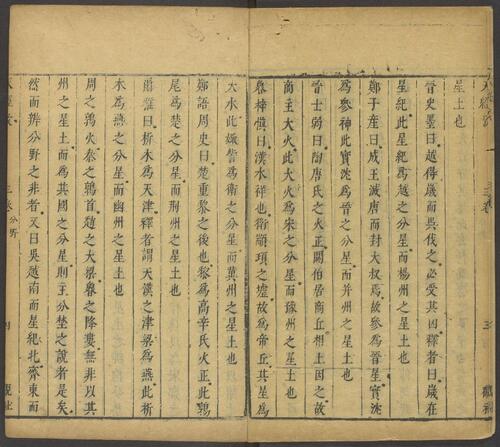 星土也
晉史墨曰越得歲而吳伐之必受其凶釋者曰歲在
星紀此星紀爲越之分星而楊州之星土也
鄭子產曰成王滅唐而封大叔焉故參爲晉星實沈
爲參神此實沈爲晉之分星而并州之星土也
晉士弱曰陶唐氏之火正閼伯居商丘相土因之故
商主大火此大火爲宋之分星而豫州之星土也
魯梓慎曰漢水祥也衛顓頊之墟故爲帝丘其星爲
大水此娵訾爲衛之分星而冀州之星土也
鄭語周史曰楚重黎之後也黎爲高辛氏火正此鶉
尾爲楚之分星而荊州之星土也
爾雅曰析木爲天津釋者謂天漢之津梁爲燕此析
木爲燕之分星而幽州之星土也
周之鶉火秦之鶉首趙之大梁魯之降婁無非以其
州之星土而爲其國之分星則主分埜之說者是矣
然而辨分野之非者又曰吳越南而星紀北齊東而
三卷 分野